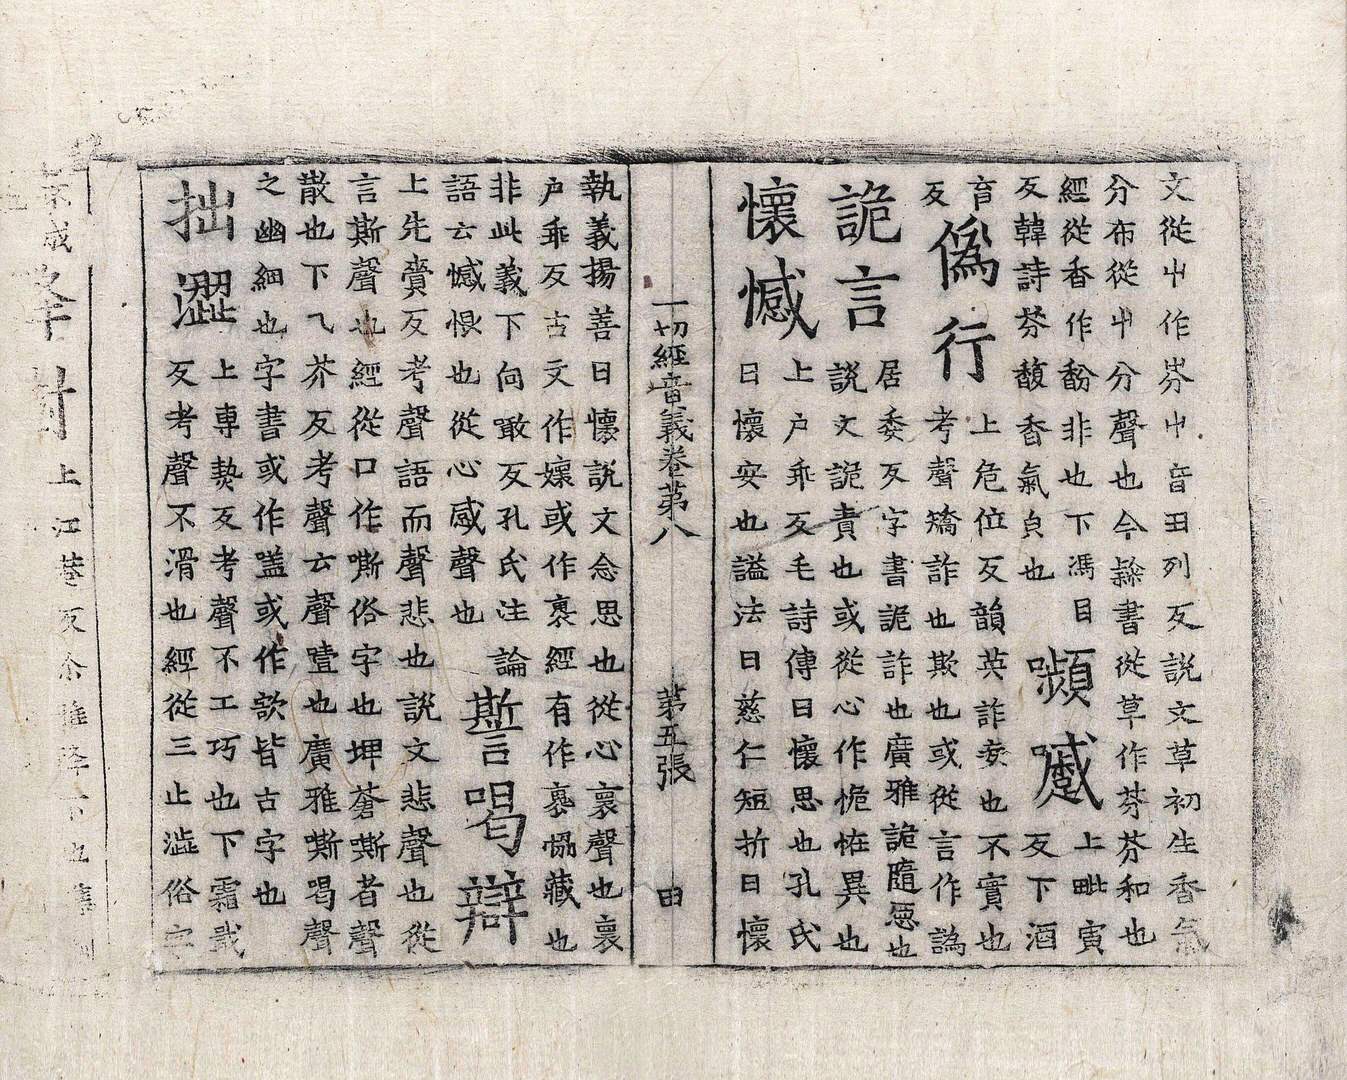 文從屮作芬屮音丑列反説文草初生香氣
分布從屮分聲也今𨽻書從草作芬芬和也
經從香作馚非也下馮目
反韓詩芬馥香氣皃也
嚬嘁
上毗寅
反下酒
育
反
僞行
上危位反韻英詐妄也不實也
考聲矯詐也欺也或從言作譌
詭言
居委反字書詭詐也廣雅詭隨惡也
説文詭責也或從心作恑恠異也
懷憾
上户乖反毛詩傳曰懷思也孔氏
曰懷安也謚法曰慈仁短折曰懷
一切經音義卷第八 第五張 田
執義揚善曰懷説文念思也從心褱聲也褱
户乖反古文作孃或作裹經有作褢恊藏也
非此義下向敢反孔氏注論
語云憾恨也從心感聲也
謺喝辯
上先賷反考聲語而聲悲也説文悲聲也從
言斯聲也經從口作嘶俗字也埤蒼嘶者聲
散也下乁芥反考聲云聲噎也廣雅嘶喝聲
之幽細也字書或作嗌或作欬皆古字也
拙澀
上專爇反考聲不工巧也下霜戢
反考聲不滑也經從三止澁俗字
上江巷反